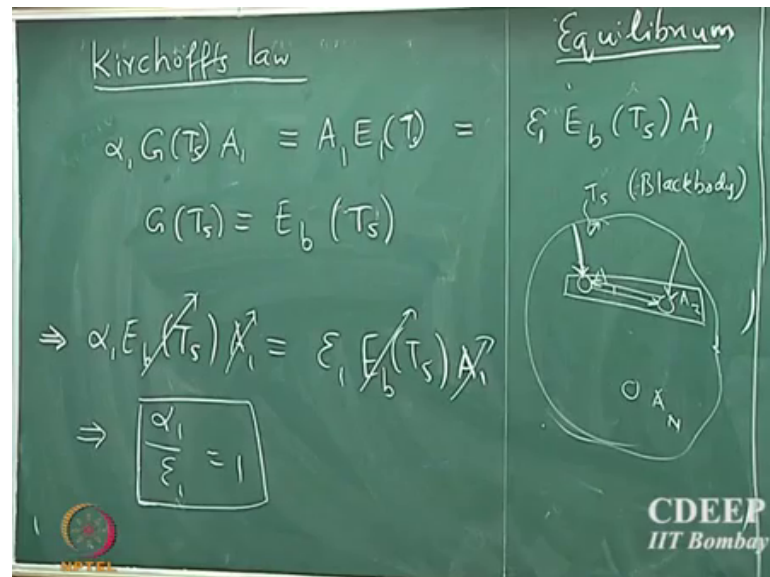 Kirchoffs law
α₁ G(Ts) A₁ ≡ A₁ E₁(Ts) =
G(Ts) ≡ E_b (Ts)
⇒ α₁ E_b(Ts) A₁ ≡ ε₁ E_b(Ts) A₁
⇒ α₁/ε₁ = 1
Equilibrium
ε₁ E_b (Ts) A₁
Ts (Blackbody)
A₁
A₂
A_N
CDEEP
IIT Bombay
NPTEL